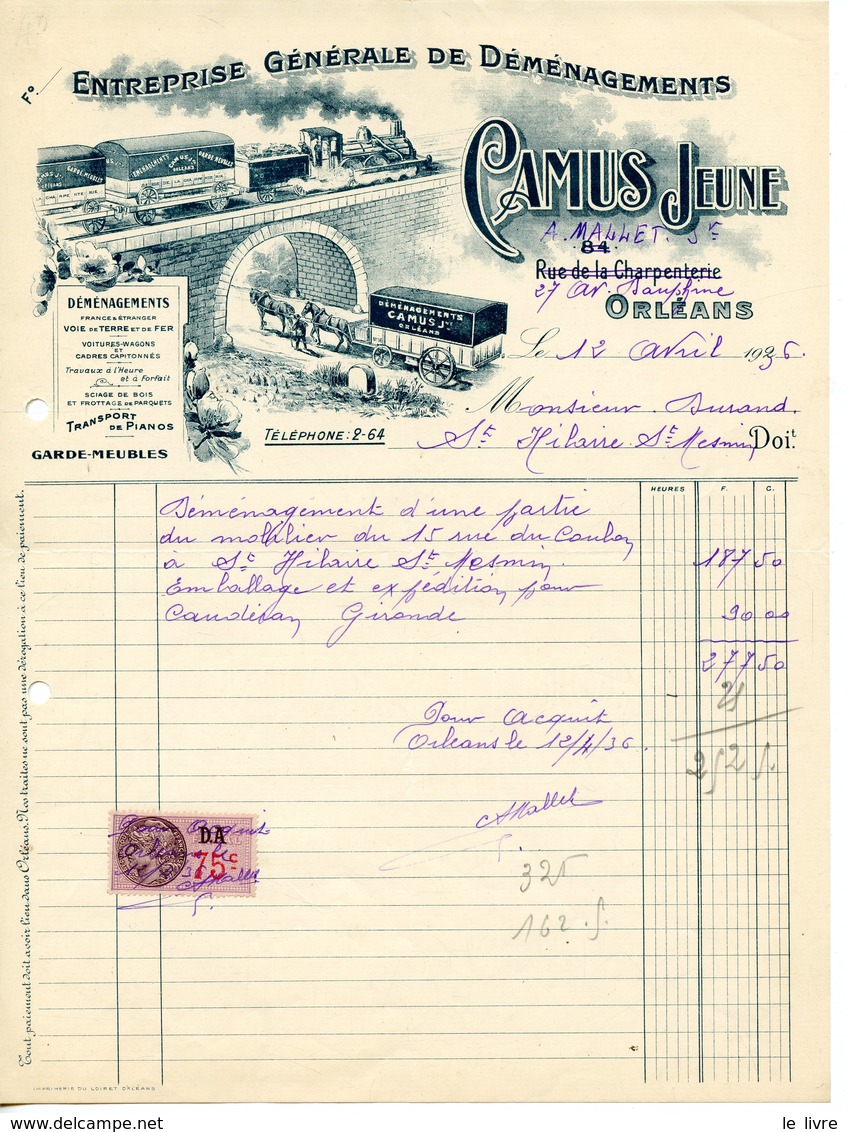 Fo.
ENTREPRISE GÉNÉRALE DE DÉMÉNAGEMENTS
CAMUS JEUNE
A. MALLET. Sr
84
Rue de la Charpenterie
27 Av. Dauphine
ORLÉANS
DÉMÉNAGEMENTS
CAMUS Jne
ORLÉANS
GARDE-MEUBLES
DÉMÉNAGEMENTS
CAMUS Jne
ORLÉANS
DÉMÉNAGEMENTS
FRANCE & ÉTRANGER
VOIE DE TERRE ET DE FER
VOITURES-WAGONS
ET
CADRES CAPITONNÉS
Travaux à l'Heure
et à Forfait
SCIAGE DE BOIS
ET FROTTAGE DE PARQUETS
TRANSPORT
DE PIANOS
GARDE-MEUBLES
TÉLÉPHONE: 2-64
Le 12 Avril 1936.
Monsieur Durand.
St Hilaire St Mesmin Doit.
HEURES F. C.
Déménagement d'une partie
du mobilier du 15 rue du Coulon
à St Hilaire St Mesmin. 187 50
Emballage et expédition pour
Caudéran Gironde 90 00
277 50
25
252 5.
Pour Acquit
Orléans le 12/4/36.
AMallet
D.A
75c
Pour Acquit
Orléans le
12/4/36
AMallet
325
162.5.
Tout paiement doit avoir lieu dans Orléans. Nos traites ne sont pas une dérogation à ce lieu de paiement.
IMPRIMERIE DU LOIRET ORLÉANS
le livre